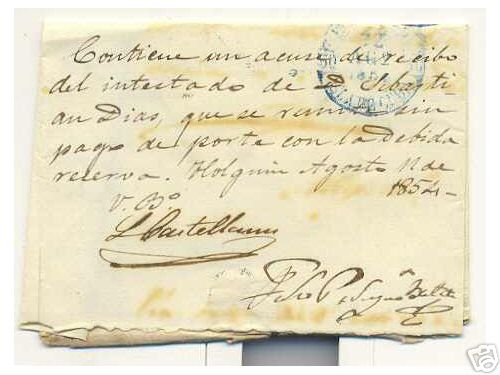 Contiene un acuse de recibo
del intestado de Dn Sebasti
an Dias, que se remite sin
pago de porte con la debida
reserva. Holguin Agosto 11 de
1854-
V. Bo.
L Castellanos